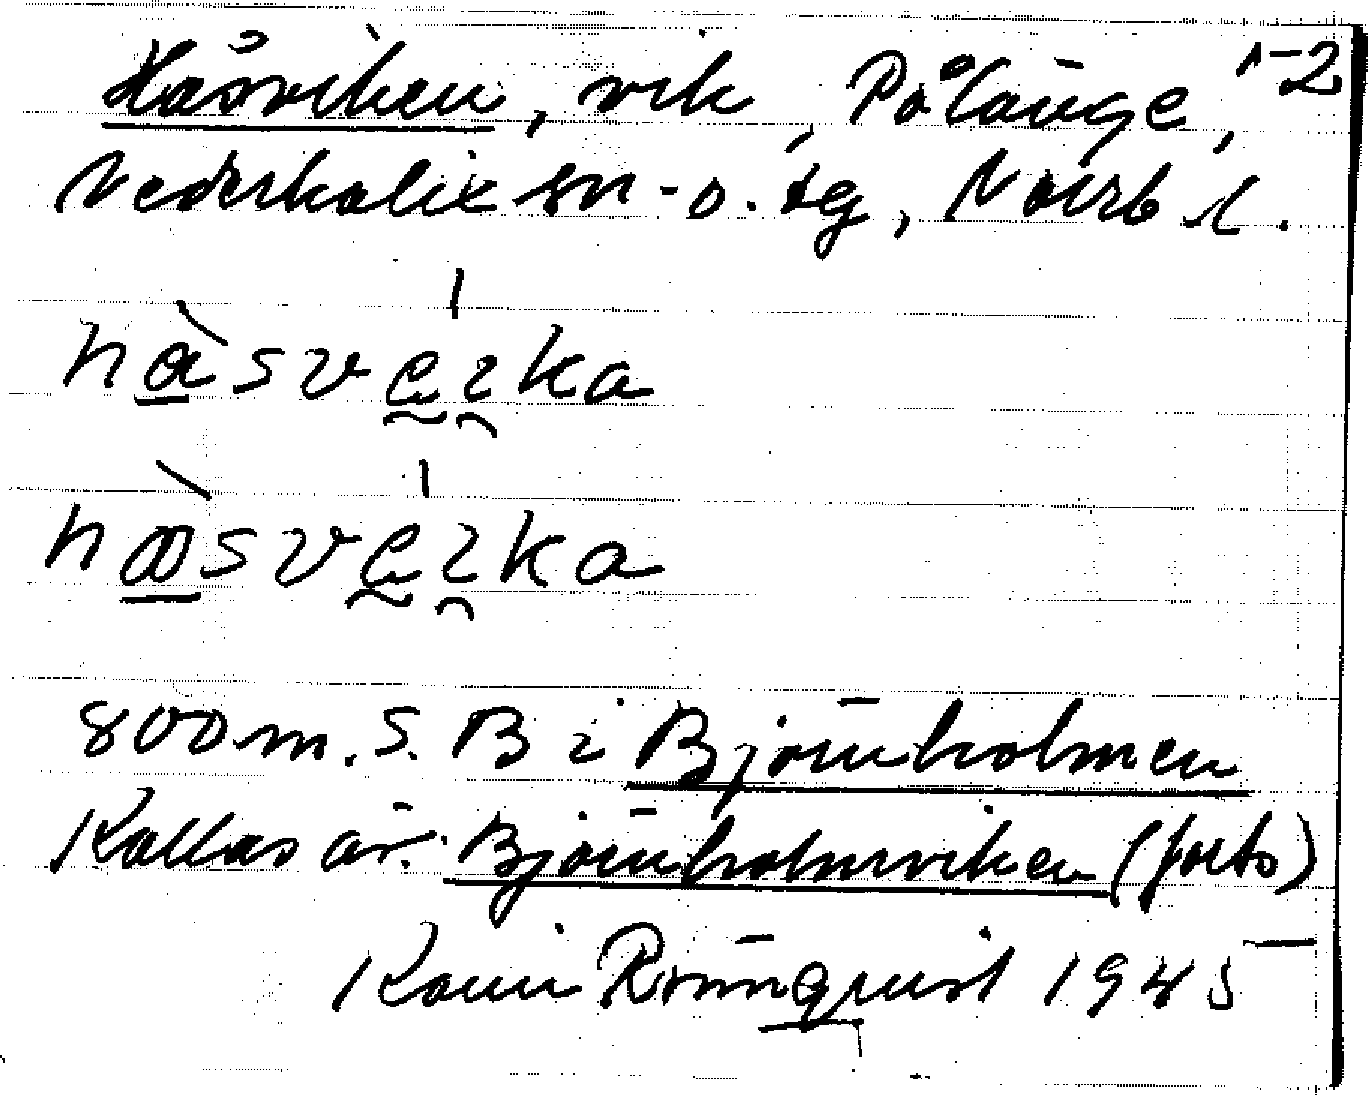 Håsviken, vik, Pålänge, 1-2
Nederkalix sn - o. tg, Norrb l.
hàsve̯ı̯ka
hòsve̯ı̯ka
800 m. S. B i Björnholmen
Kallas äv. Björnholmsviken (foto)
Karin Rönnquist 1945